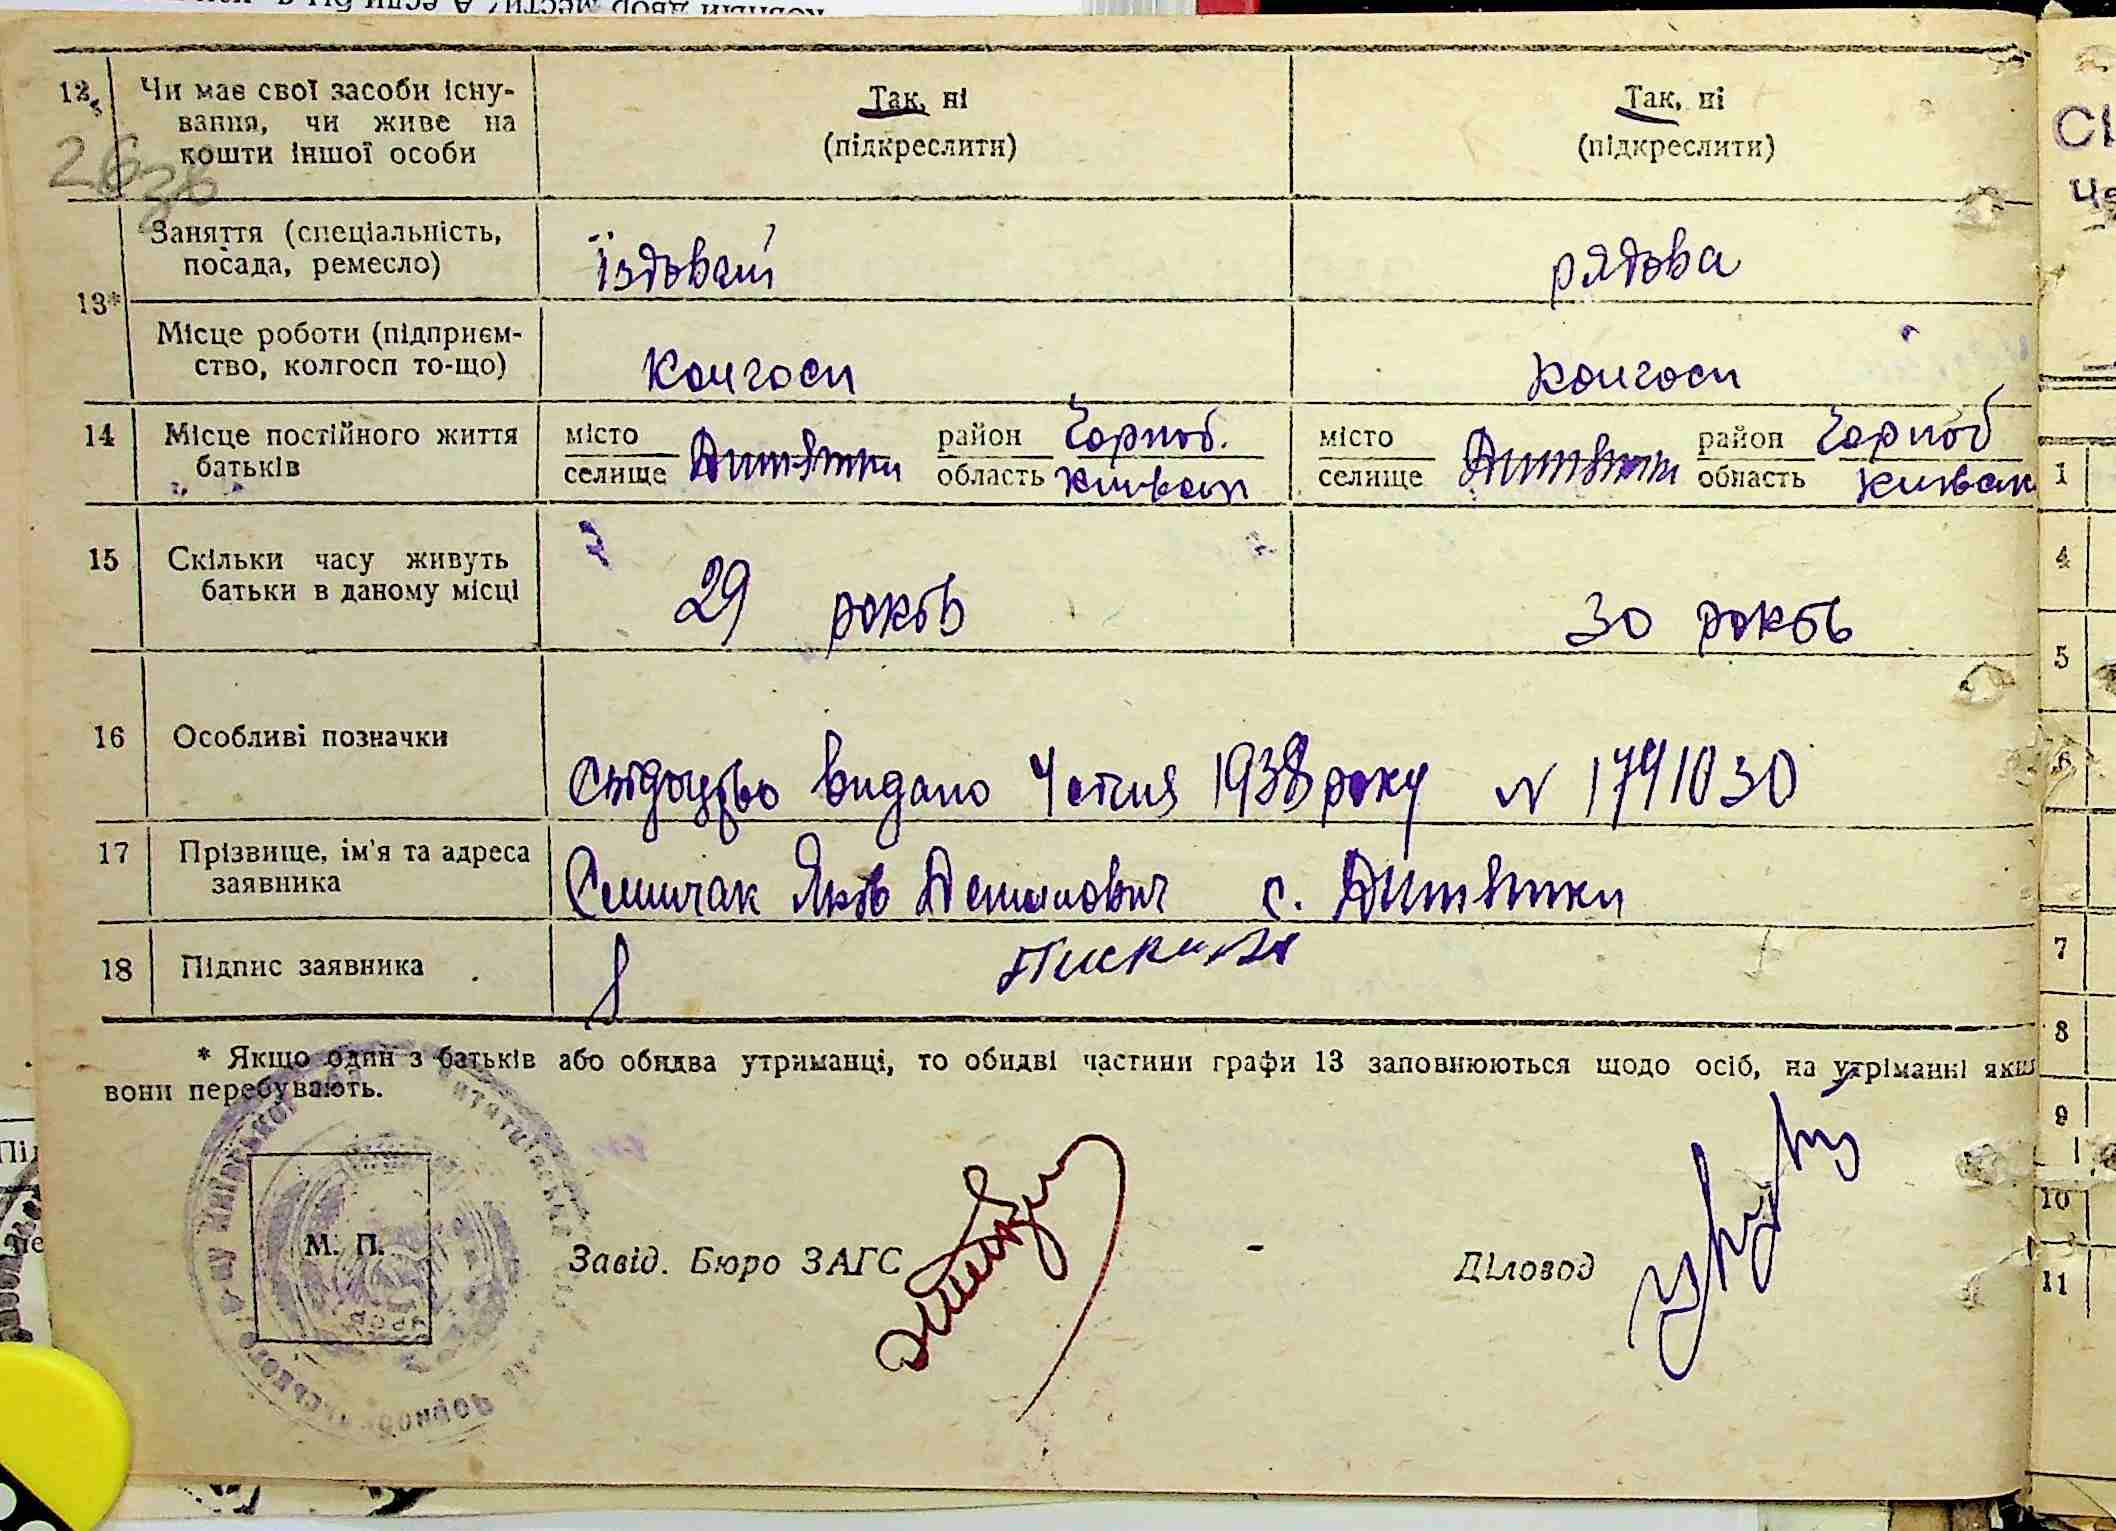 12. Чи має свої засоби існу-
вання, чи живе на
кошти іншої особи
Так, ні
(підкреслити)
Так, ні
(підкреслити)
2638
13*
Заняття (спеціальність,
посада, ремесло)
їздовий
рядова
Місце роботи (підприєм-
ство, колгосп то-що)
колгосп
колгосп
14 Місце постійного життя
батьків
місто
селище
Дитятки
район Чорноб.
область Київськ
місто
селище
Дитятки
район Чорноб
область Київськ
15 Скільки часу живуть
батьки в даному місці
29 років
30 років
16 Особливі позначки
Свідоцтво видано 4 січня 1938 року № 1791030
17 Прізвище, ім'я та адреса
заявника
Яків с. Дитятки
18 Підпис заявника
* Якщо один з батьків або обидва утриманці, то обидві частини графи 13 заповнюються щодо осіб, на утріманні яких
вони перебувають.
М. П.
Завід. Бюро ЗАГС
Діловод
1
4
5
6
7
8
9
10
11